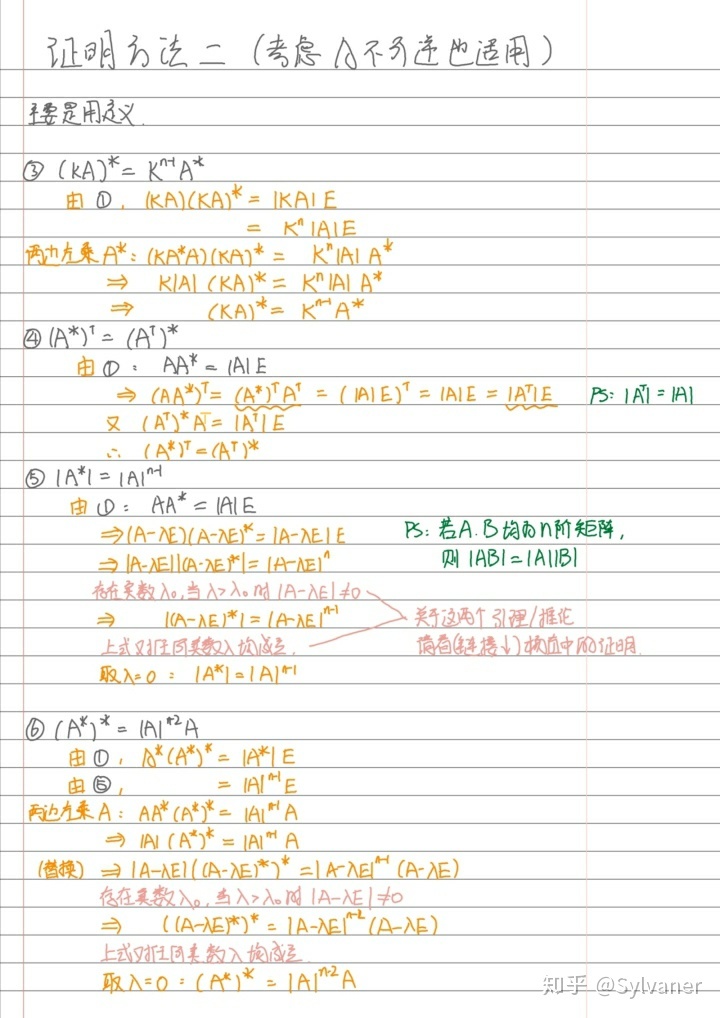 证明方法二（考虑A不可逆也适用）
主要是用定义.
③ (KA)* = Kⁿ⁻¹A*
由①, (KA)(KA)* = |KA|E
= Kⁿ|A|E
两边左乘A*: (KA*A)(KA)* = Kⁿ|A|A*
⇒ K|A|(KA)* = Kⁿ|A|A*
⇒ (KA)* = Kⁿ⁻¹A*
④ (A*)ᵀ = (Aᵀ)*
由①: AA* = |A|E
⇒ (AA*)ᵀ = (A*)ᵀAᵀ = (|A|E)ᵀ = |A|E = |Aᵀ|E PS: |Aᵀ| = |A|
又 (Aᵀ)*Aᵀ = |Aᵀ|E
∴ (A*)ᵀ = (Aᵀ)*
⑤ |A*| = |A|ⁿ⁻¹
由①: AA* = |A|E
⇒ (A-λE)(A-λE)* = |A-λE|E
⇒ |A-λE||(A-λE)*| = |A-λE|ⁿ
PS: 若A.B均为n阶矩阵,
则|AB| = |A||B|
存在实数λ₀, 当λ>λ₀时|A-λE|≠0
⇒ |(A-λE)*| = |A-λE|ⁿ⁻¹
上式对任何实数λ均成立.
关于这两个引理/推论
请看(链接↓)中的证明.
取λ=0: |A*| = |A|ⁿ⁻¹
⑥ (A*)* = |A|ⁿ⁻²A
由①, A*(A*)* = |A*|E
由⑤, = |A|ⁿ⁻¹E
两边左乘A: AA*(A*)* = |A|ⁿ⁻¹A
⇒ |A|(A*)* = |A|ⁿ⁻¹A
(替换) ⇒ |A-λE|((A-λE)*)* = |A-λE|ⁿ⁻¹(A-λE)
存在实数λ₀, 当λ>λ₀时|A-λE|≠0
⇒ ((A-λE)*)* = |A-λE|ⁿ⁻²(A-λE)
上式对任何实数λ均成立.
取λ=0: (A*)* = |A|ⁿ⁻²A
知乎 @Sylvaner